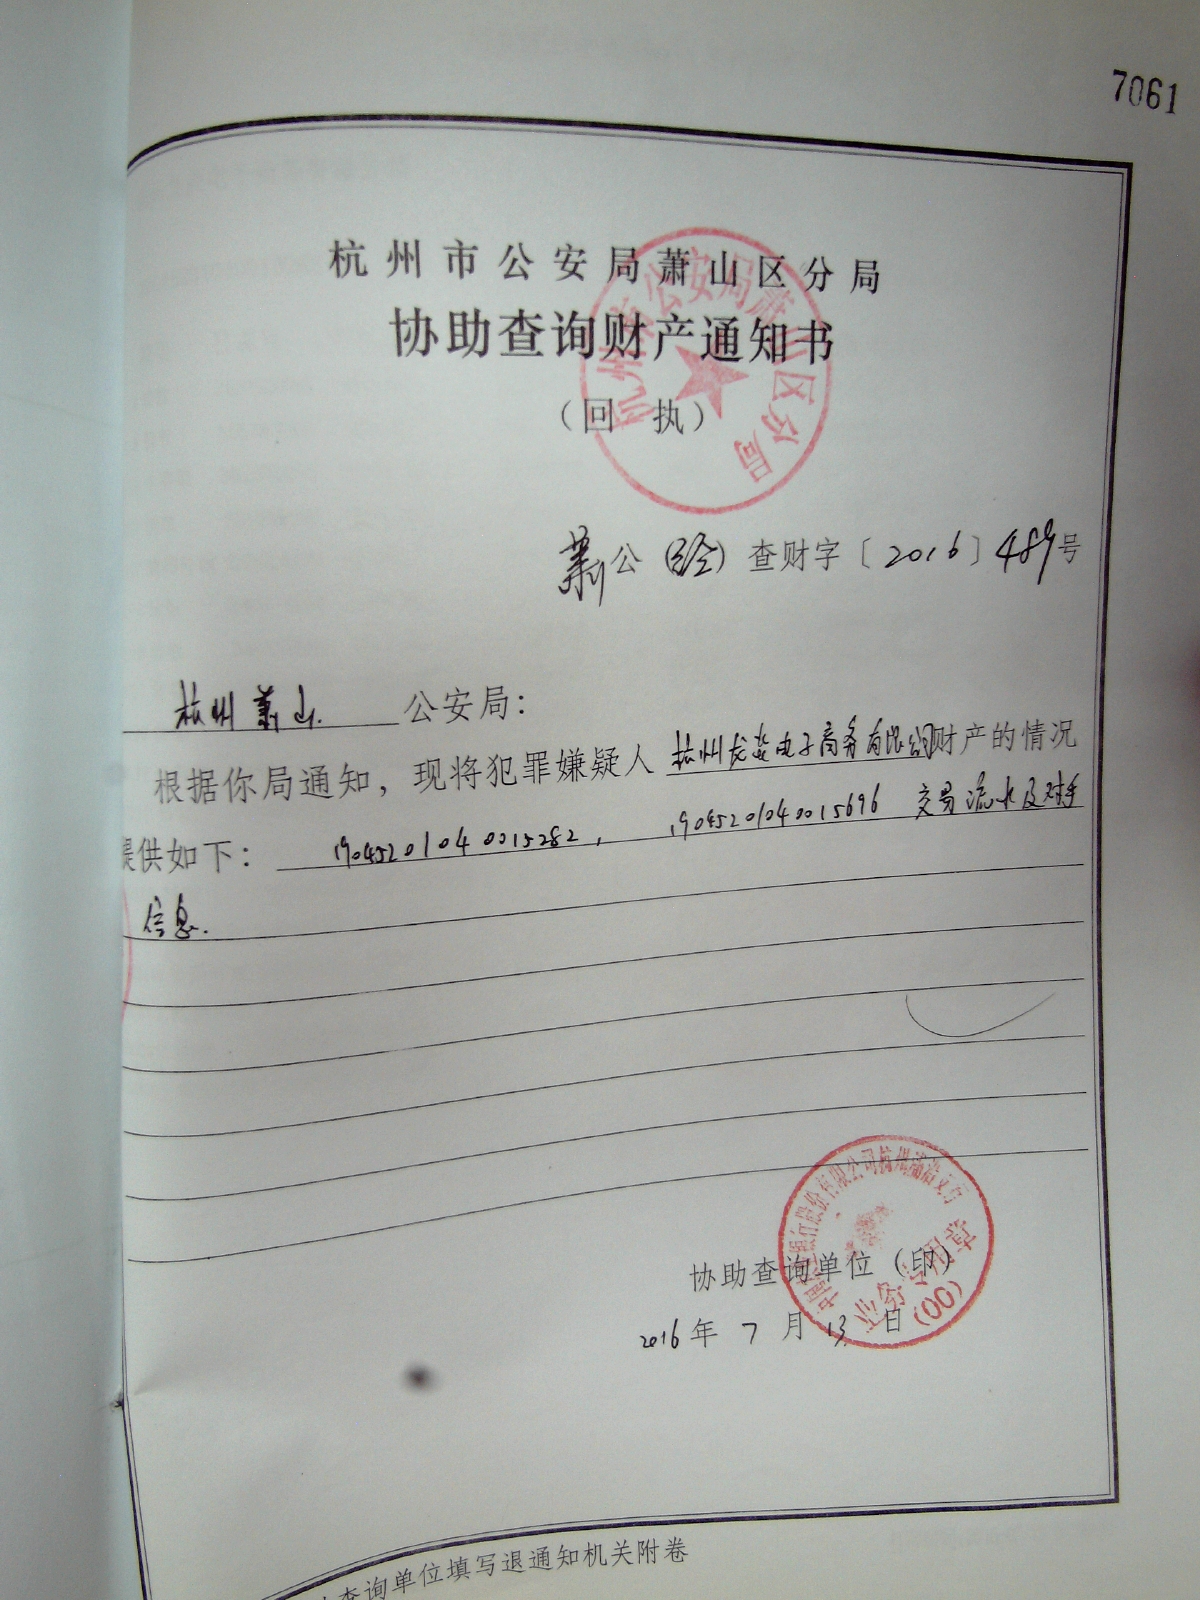 7061
杭州市公安局萧山区分局
协助查询财产通知书
（回 执）
杭州市公安局萧山区分局
萧公（经）查财字〔2016〕489号
杭州萧山 公安局：
根据你局通知，现将犯罪嫌疑人 杭州龙 电子商务有限公司 财产的情况
提供如下： 19045201040015282， 19045201040015696 交易流水及对手
信息.
协助查询单位（印）
2016年7月13日
业务专用章
(00)
查询单位填写退通知机关附卷